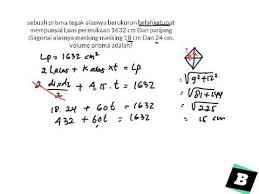 sebuah prisma tegak alasnya berukuran belahketupat
mempunyai Luas permukaan 1632 cm Dan panjang
diagonal alasnya masking masking 18 cm Dan 24 cm.
volume prisma adalah?
Lp = 1632 cm²
2 Lalas + K alas x t = Lp
2 d1xd2/2 + 4.15.t = 1632
18.24 + 60t = 1632
432 + 60t = 1632
= √9²+12²
= √81+144
= √225
= 15 cm
B